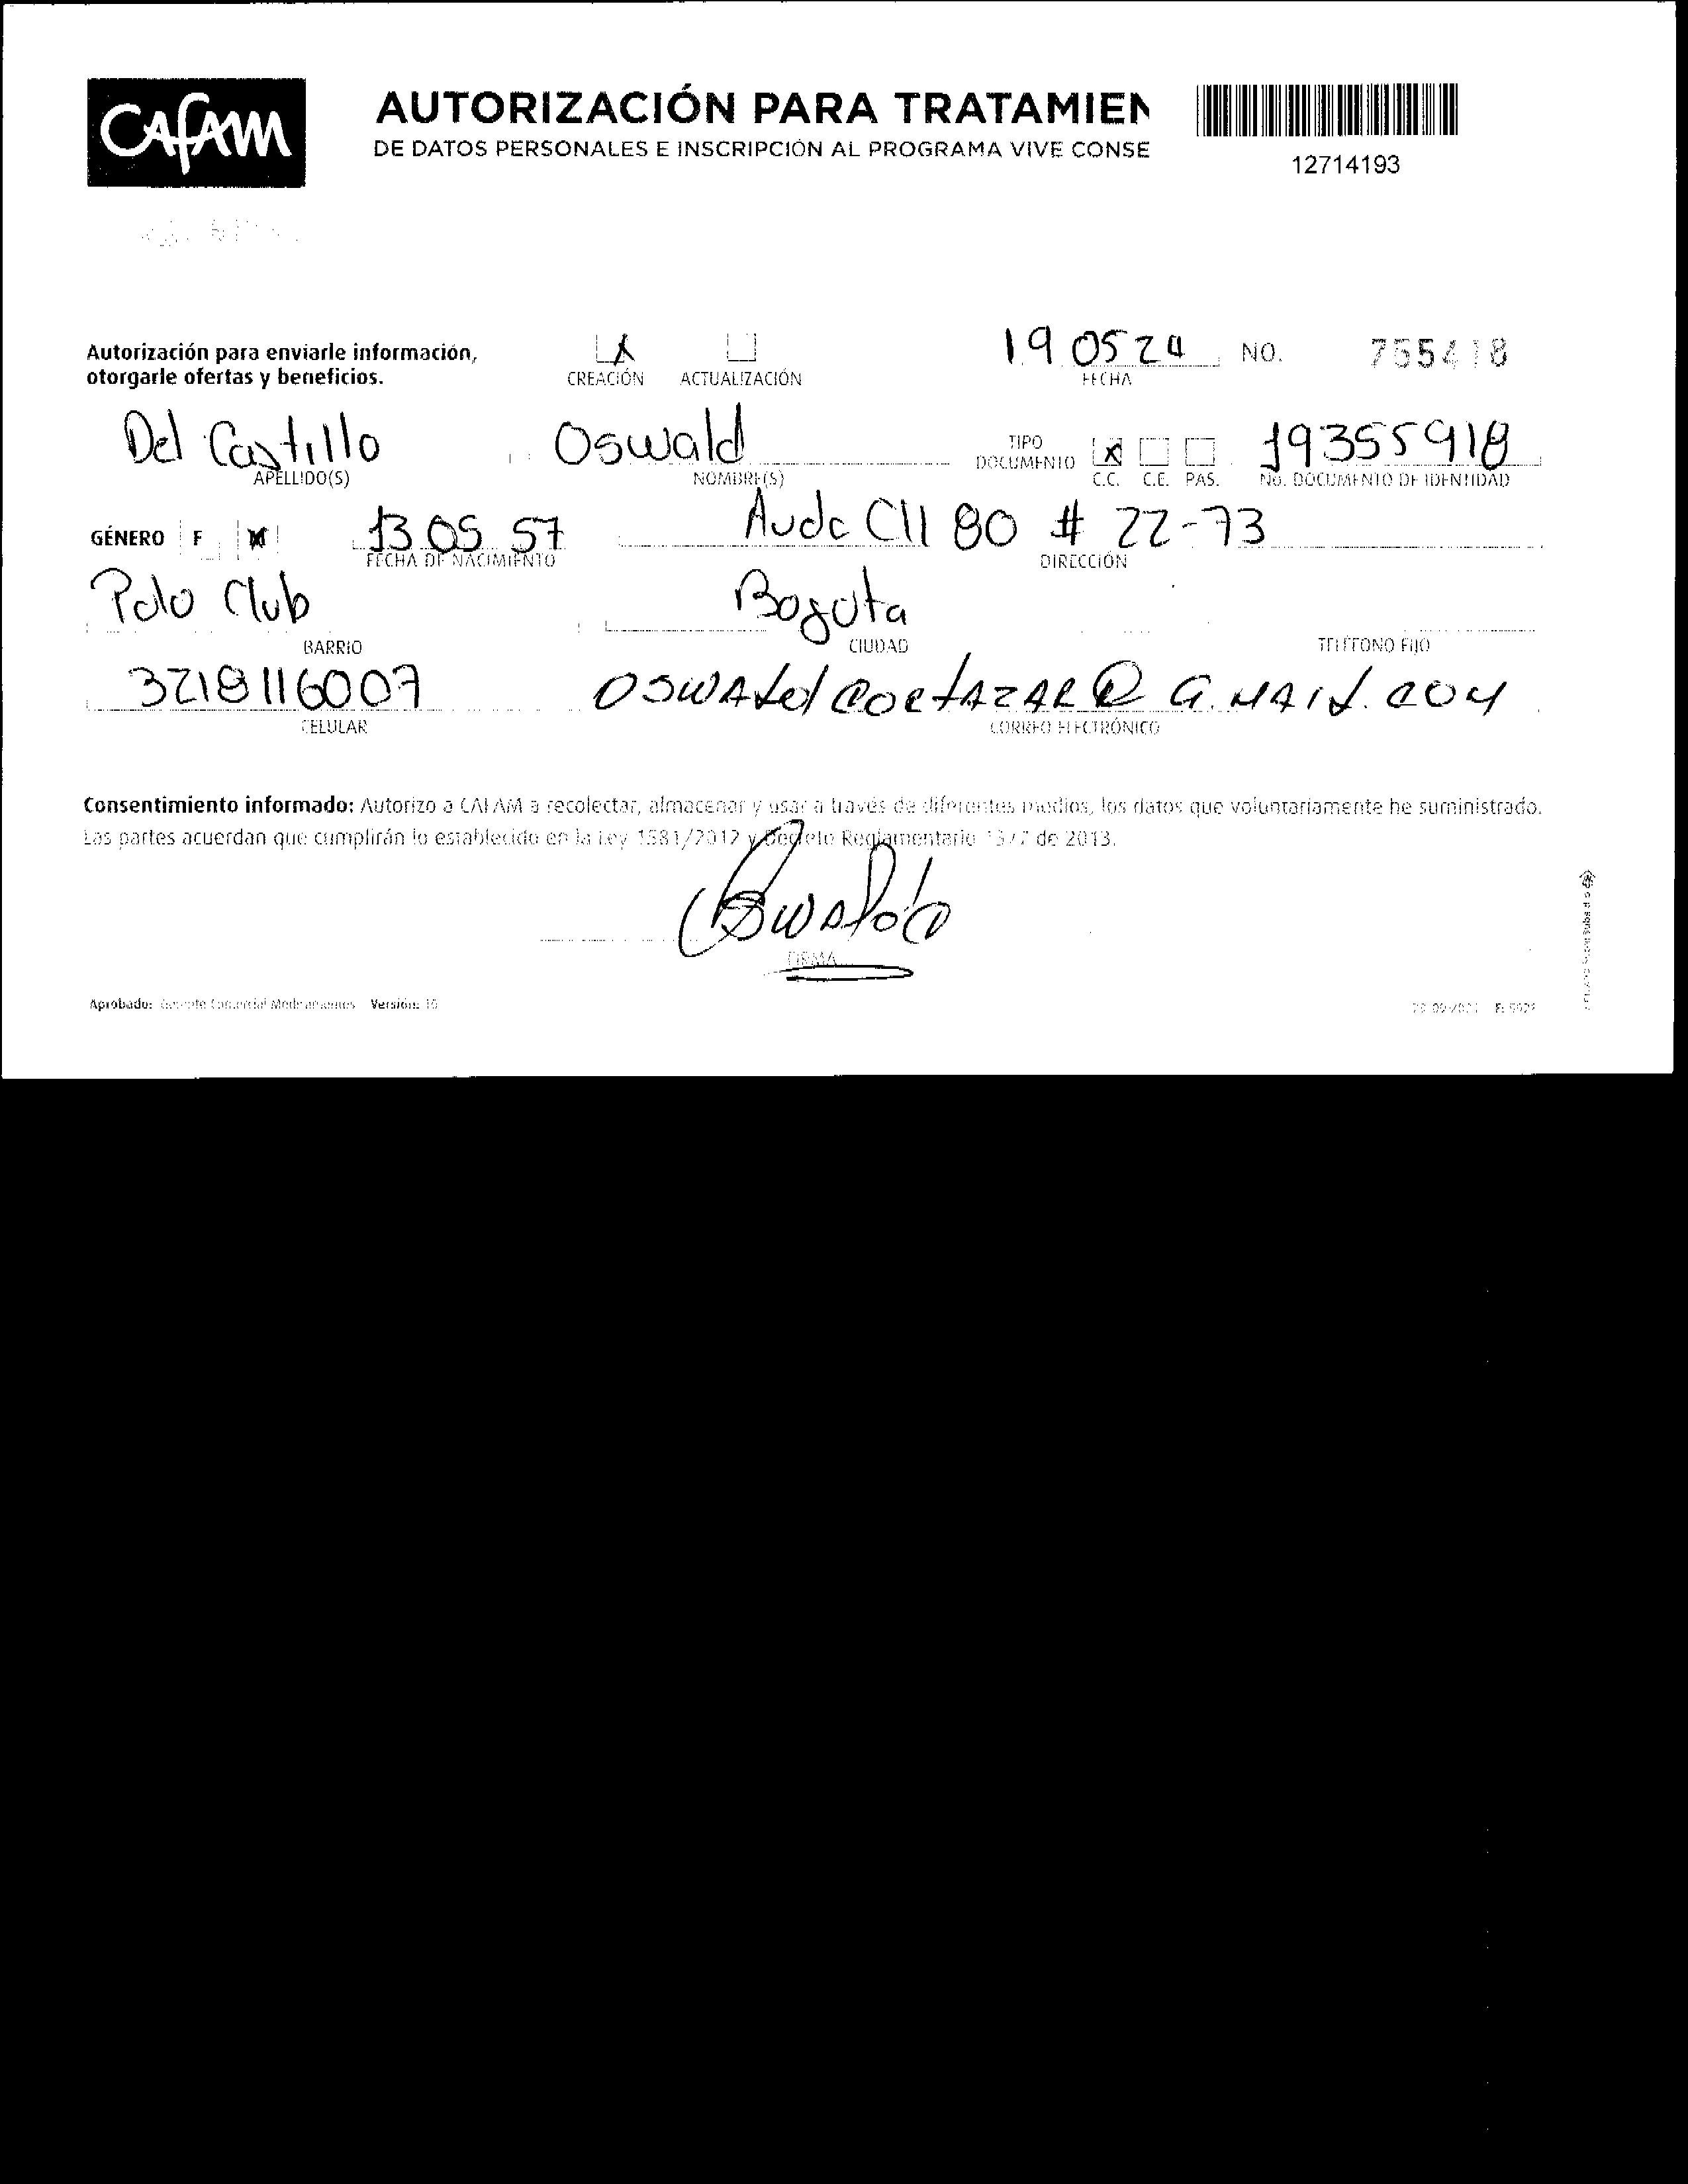 CAFAM
AUTORIZACIÓN PARA TRATAMIEN
DE DATOS PERSONALES E INSCRIPCIÓN AL PROGRAMA VIVE CONSE
12714193
Autorización para enviarle información,
otorgarle ofertas y beneficios.
X CREACIÓN ACTUALIZACIÓN
19 05 24 FECHA
NO. 755418
Del Castillo Oswald TIPO DOCUMENTO X 19355918
APELLIDO(S) NOMBRE(S) C.C. C.E. PAS. NO. DOCUMENTO DE IDENTIDAD
GÉNERO F M 13 05 57 Avda Cll 80 # 22-73
FECHA DE NACIMIENTO DIRECCIÓN
Polo Club Bogota
BARRIO CIUDAD TELÉFONO FIJO
3218116007 OSWALd CORtAZAR @ G.MAIL.COM
CELULAR CORREO ELECTRÓNICO
Consentimiento informado: Autorizo a CAFAM a recolectar, almacenar y usar a través de diferentes medios, los datos que voluntariamente he suministrado.
Las partes acuerdan que cumplirán lo establecido en la Ley 1581/2012 y Decreto Reglamentario 1377 de 2013.
FIRMA
Aprobado: Gerente Comercial Medicamentos Versión: 10